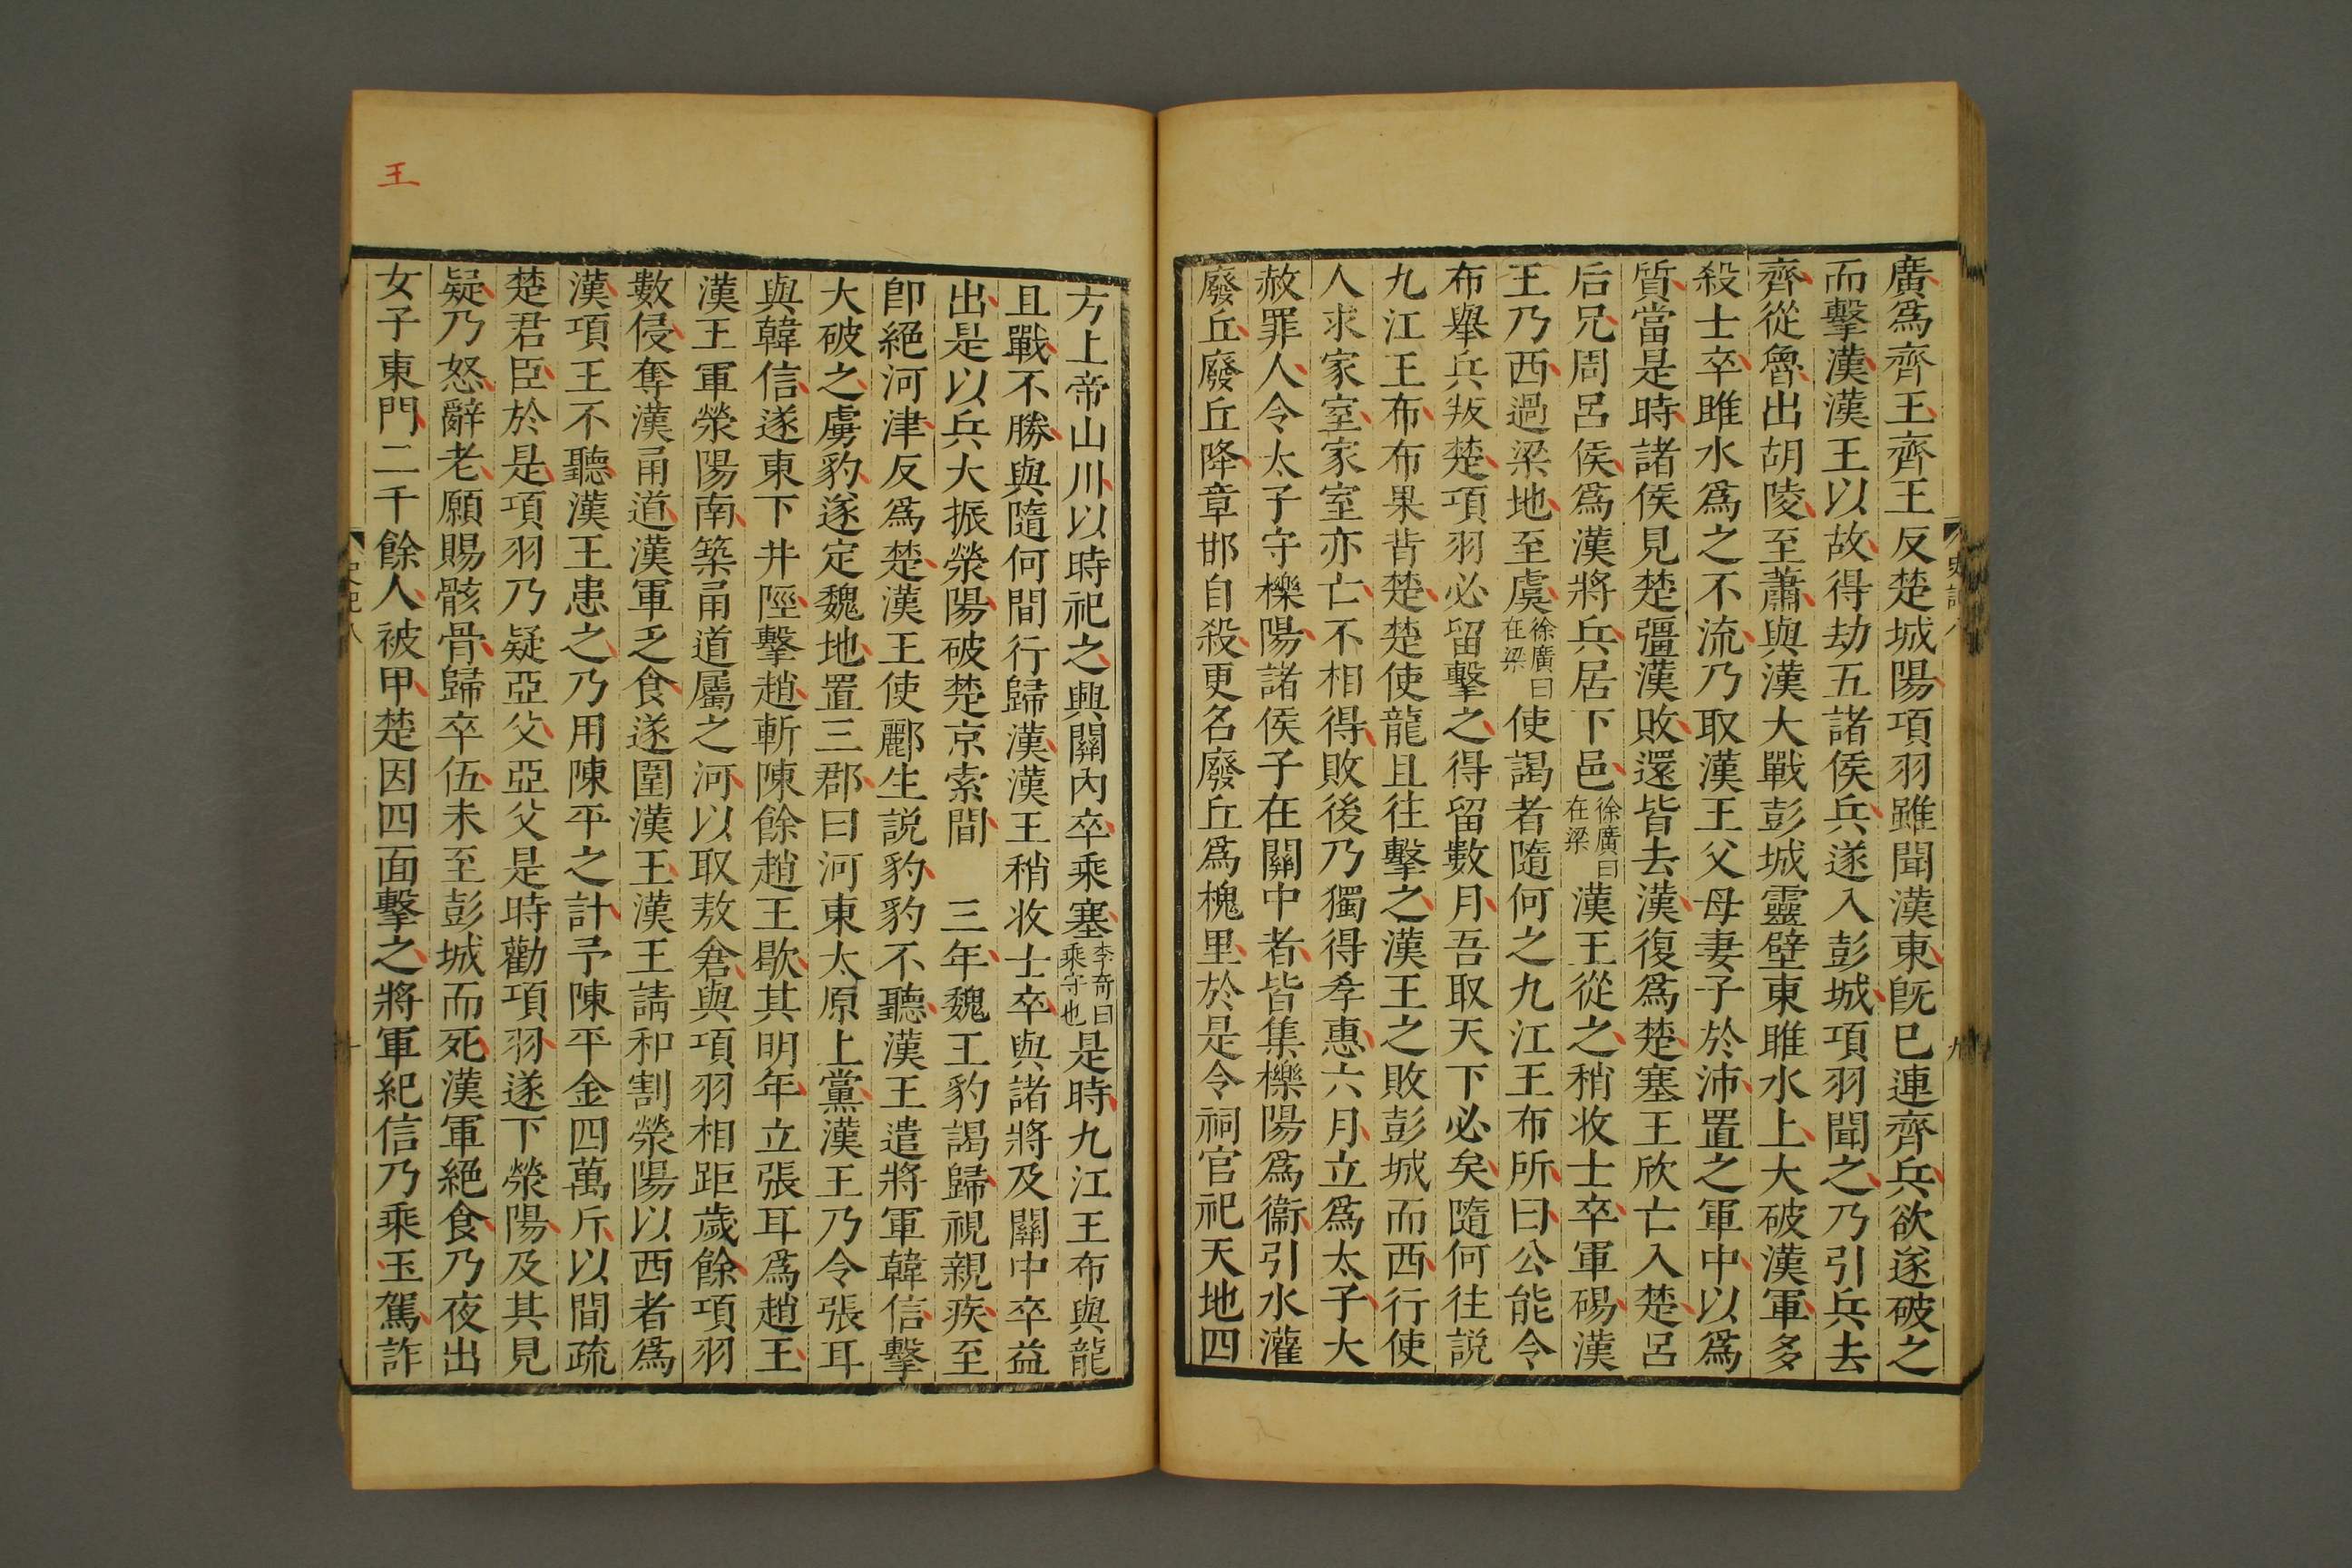 廣爲齊王齊王反楚城陽項羽雖聞漢東旣已連齊兵欲遂破之
而擊漢漢王以故得劫五諸侯兵遂入彭城項羽聞之乃引兵去
齊從魯出胡陵至蕭與漢大戰彭城靈壁東睢水上大破漢軍多
殺士卒睢水爲之不流乃取漢王父母妻子於沛置之軍中以爲
質當是時諸侯見楚彊漢敗還皆去漢復爲楚塞王欣亡入楚呂
后兄周呂侯爲漢將兵居下邑徐廣曰在梁漢王從之稍收士卒軍碭漢
王乃西過梁地至虞徐廣曰在梁使謁者隨何之九江王布所曰公能令
布舉兵叛楚項羽必留擊之得留數月吾取天下必矣隨何往説
九江王布布果背楚楚使龍且往擊之漢王之敗彭城而西行使
人求家室家室亦亡不相得敗後乃獨得孝惠六月立爲太子大
赦罪人令太子守櫟陽諸侯子在關中者皆集櫟陽爲衞引水灌
廢丘廢丘降章邯自殺更名廢丘爲槐里於是令祠官祀天地四
史記八
九
王
方上帝山川以時祀之興關內卒乘塞李奇曰乘守也是時九江王布與龍
且戰不勝與隨何間行歸漢漢王稍收士卒與諸將及關中卒益
出是以兵大振滎陽破楚京索間　三年魏王豹謁歸視親疾至
卽絕河津反爲楚漢王使酈生説豹豹不聽漢王遣將軍韓信擊
大破之虜豹遂定魏地置三郡曰河東太原上黨漢王乃令張耳
與韓信遂東下井陘擊趙斬陳餘趙王歇其明年立張耳爲趙王
漢王軍滎陽南築甬道屬之河以取敖倉與項羽相距歲餘項羽
數侵奪漢甬道漢軍乏食遂圍漢王漢王請和割滎陽以西者爲
漢項王不聽漢王患之乃用陳平之計予陳平金四萬斤以間疏
楚君臣於是項羽乃疑亞父亞父是時勸項羽遂下滎陽及其見
疑乃怒辭老願賜骸骨歸卒伍未至彭城而死漢軍絕食乃夜出
女子東門二千餘人被甲楚因四面擊之將軍紀信乃乘王駕詐
史記八